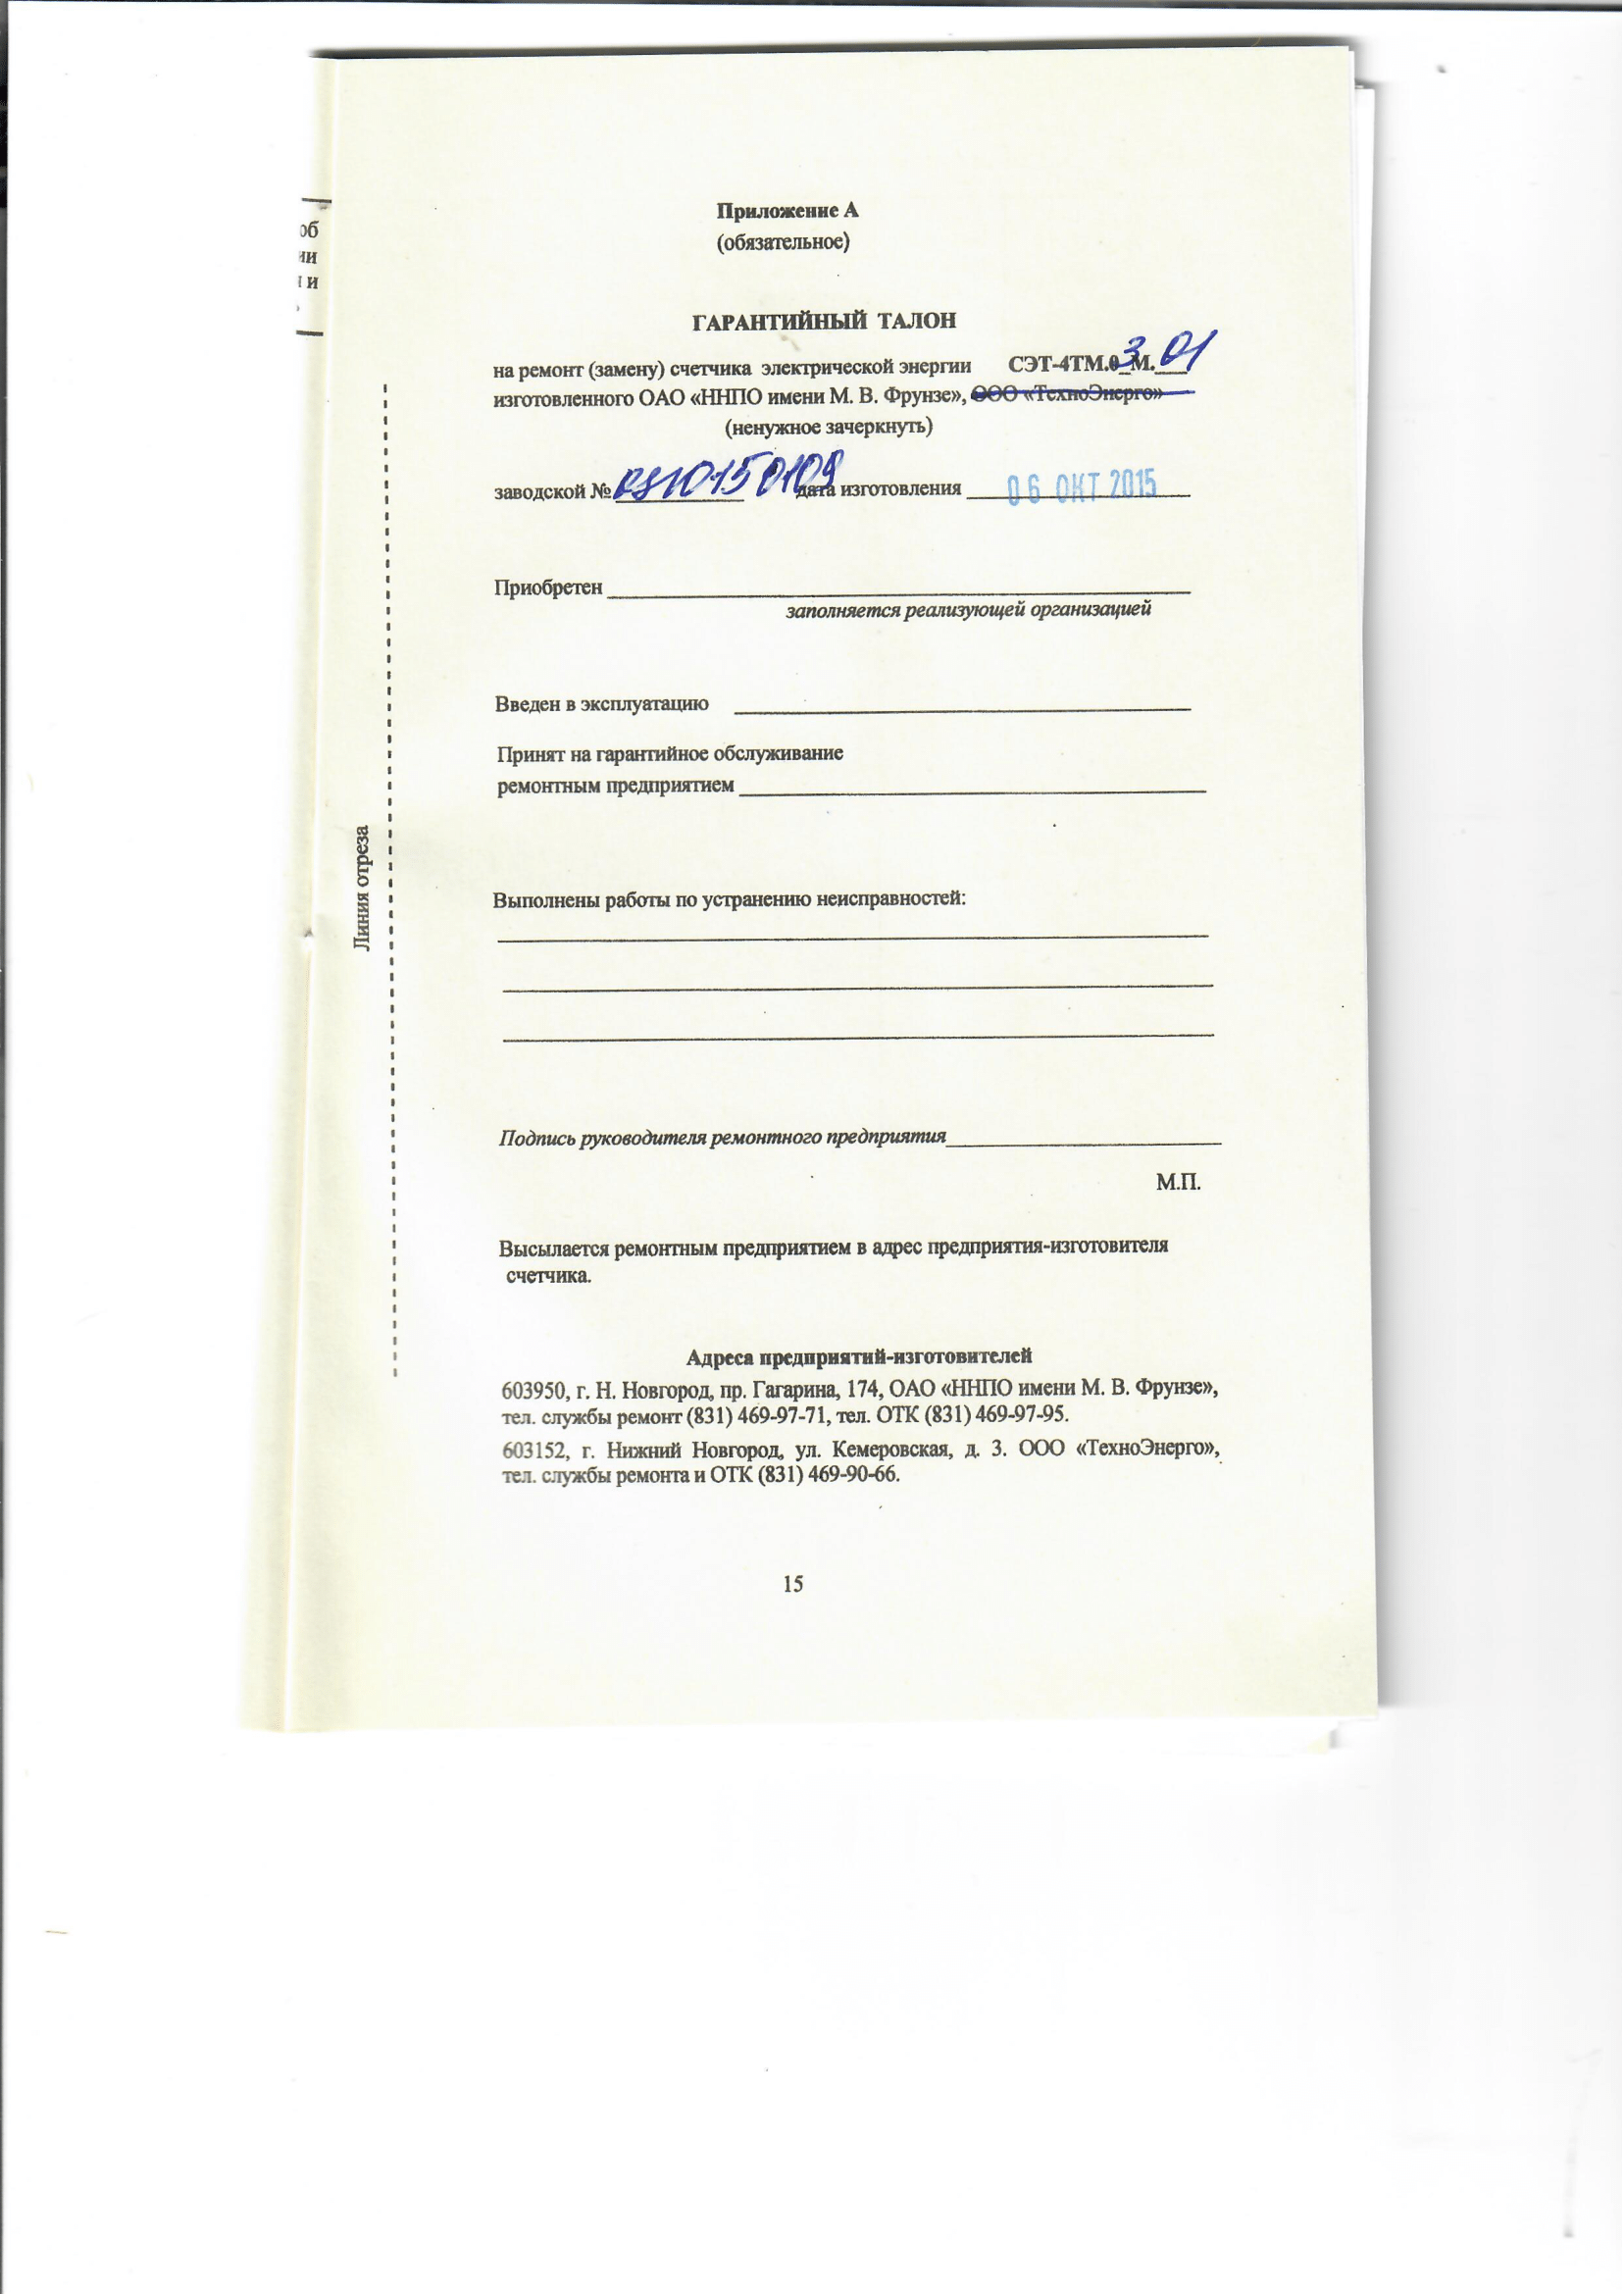 об
ии
и и
Приложение А
(обязательное)
ГАРАНТИЙНЫЙ ТАЛОН
на ремонт (замену) счетчика электрической энергии СЭТ-4ТМ.03М.01
изготовленного ОАО «ННПО имени М. В. Фрунзе», ООО «ТехноЭнерго»
(ненужное зачеркнуть)
заводской № 0810150109 дата изготовления 06 ОКТ 2015
Приобретен
заполняется реализующей организацией
Введен в эксплуатацию
Принят на гарантийное обслуживание
ремонтным предприятием
Линия отреза
Выполнены работы по устранению неисправностей:
Подпись руководителя ремонтного предприятия
М.П.
Высылается ремонтным предприятием в адрес предприятия-изготовителя
счетчика.
Адреса предприятий-изготовителей
603950, г. Н. Новгород, пр. Гагарина, 174, ОАО «ННПО имени М. В. Фрунзе»,
тел. службы ремонт (831) 469-97-71, тел. ОТК (831) 469-97-95.
603152, г. Нижний Новгород, ул. Кемеровская, д. 3. ООО «ТехноЭнерго»,
тел. службы ремонта и ОТК (831) 469-90-66.
15